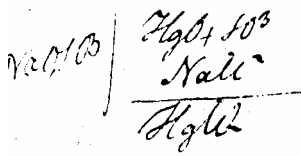 NaO, SO3
HgO + SO3
NaCl
HgCl